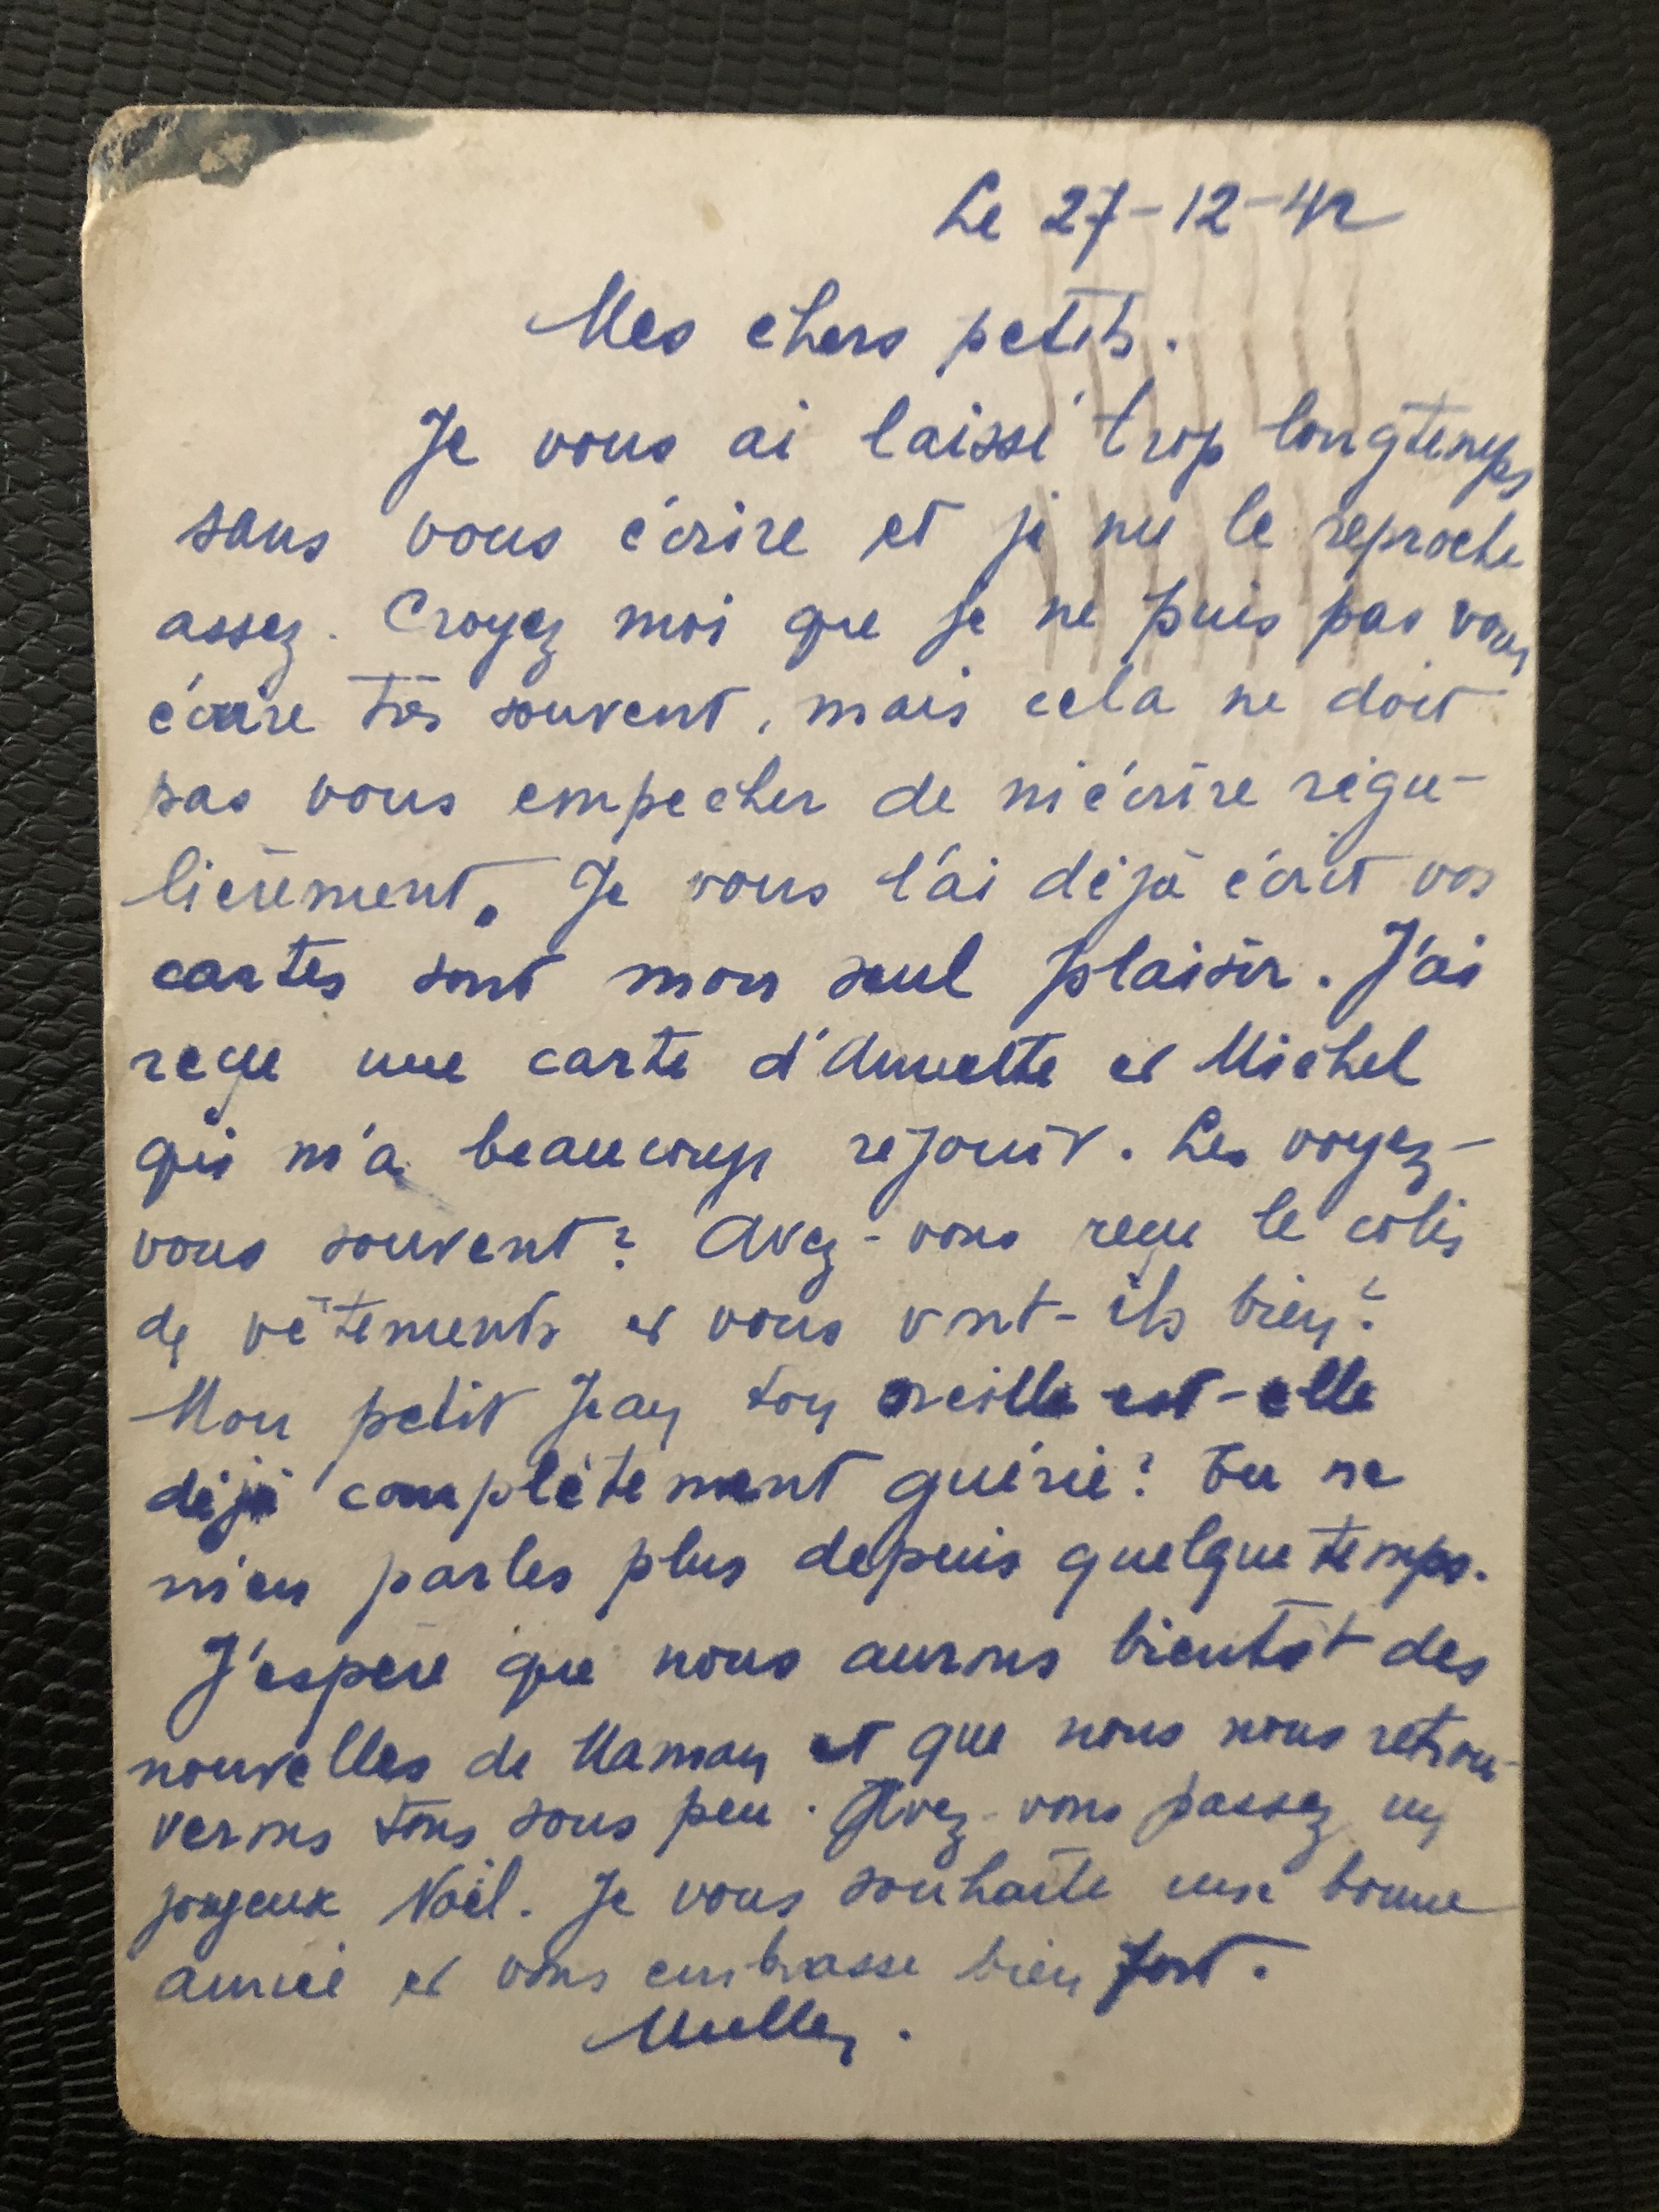 Le 27-12-42
Mes chers petits.
Je vous ai laissé trop longtemps
sans vous écrire et je me le reproche
assez. Croyez moi que je ne puis pas vous
écrire très souvent, mais cela ne doit
pas vous empecher de m'écrire régu-
lièrement. Je vous l'ai déjà écrit vos
cartes sont mon seul plaisir. J'ai
reçu une carte d'Annette et Michel
qui m'a beaucoup rejouit. Les voyez-
vous souvent? Avez-vous reçu le colis
de vêtements et vous vont-ils bien?
Mon petit Jean ton oreille est-elle
déjà complètement guérie? Tu ne
m'en parles plus depuis quelque temps.
J'espère que nous aurons bientôt des
nouvelles de Maman et que nous nous retrou-
verons tous sous peu. Avez-vous passez un
joyeux Noël. Je vous souhaite une bonne
année et vous embrasse bien fort.
Muller.